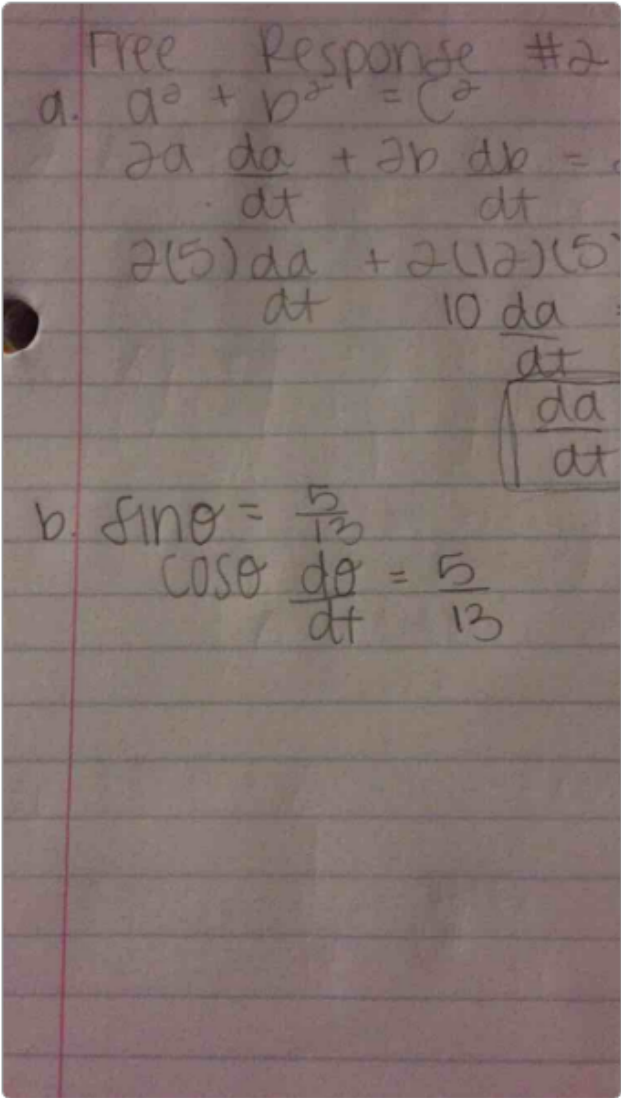 Free Response #2
a. a² + b² = c²
2a da/dt + 2b db/dt =
2(5) da/dt + 2(12)(5
10 da/dt
da/dt
b. sinθ = 5/13
cosθ dθ/dt = 5/13